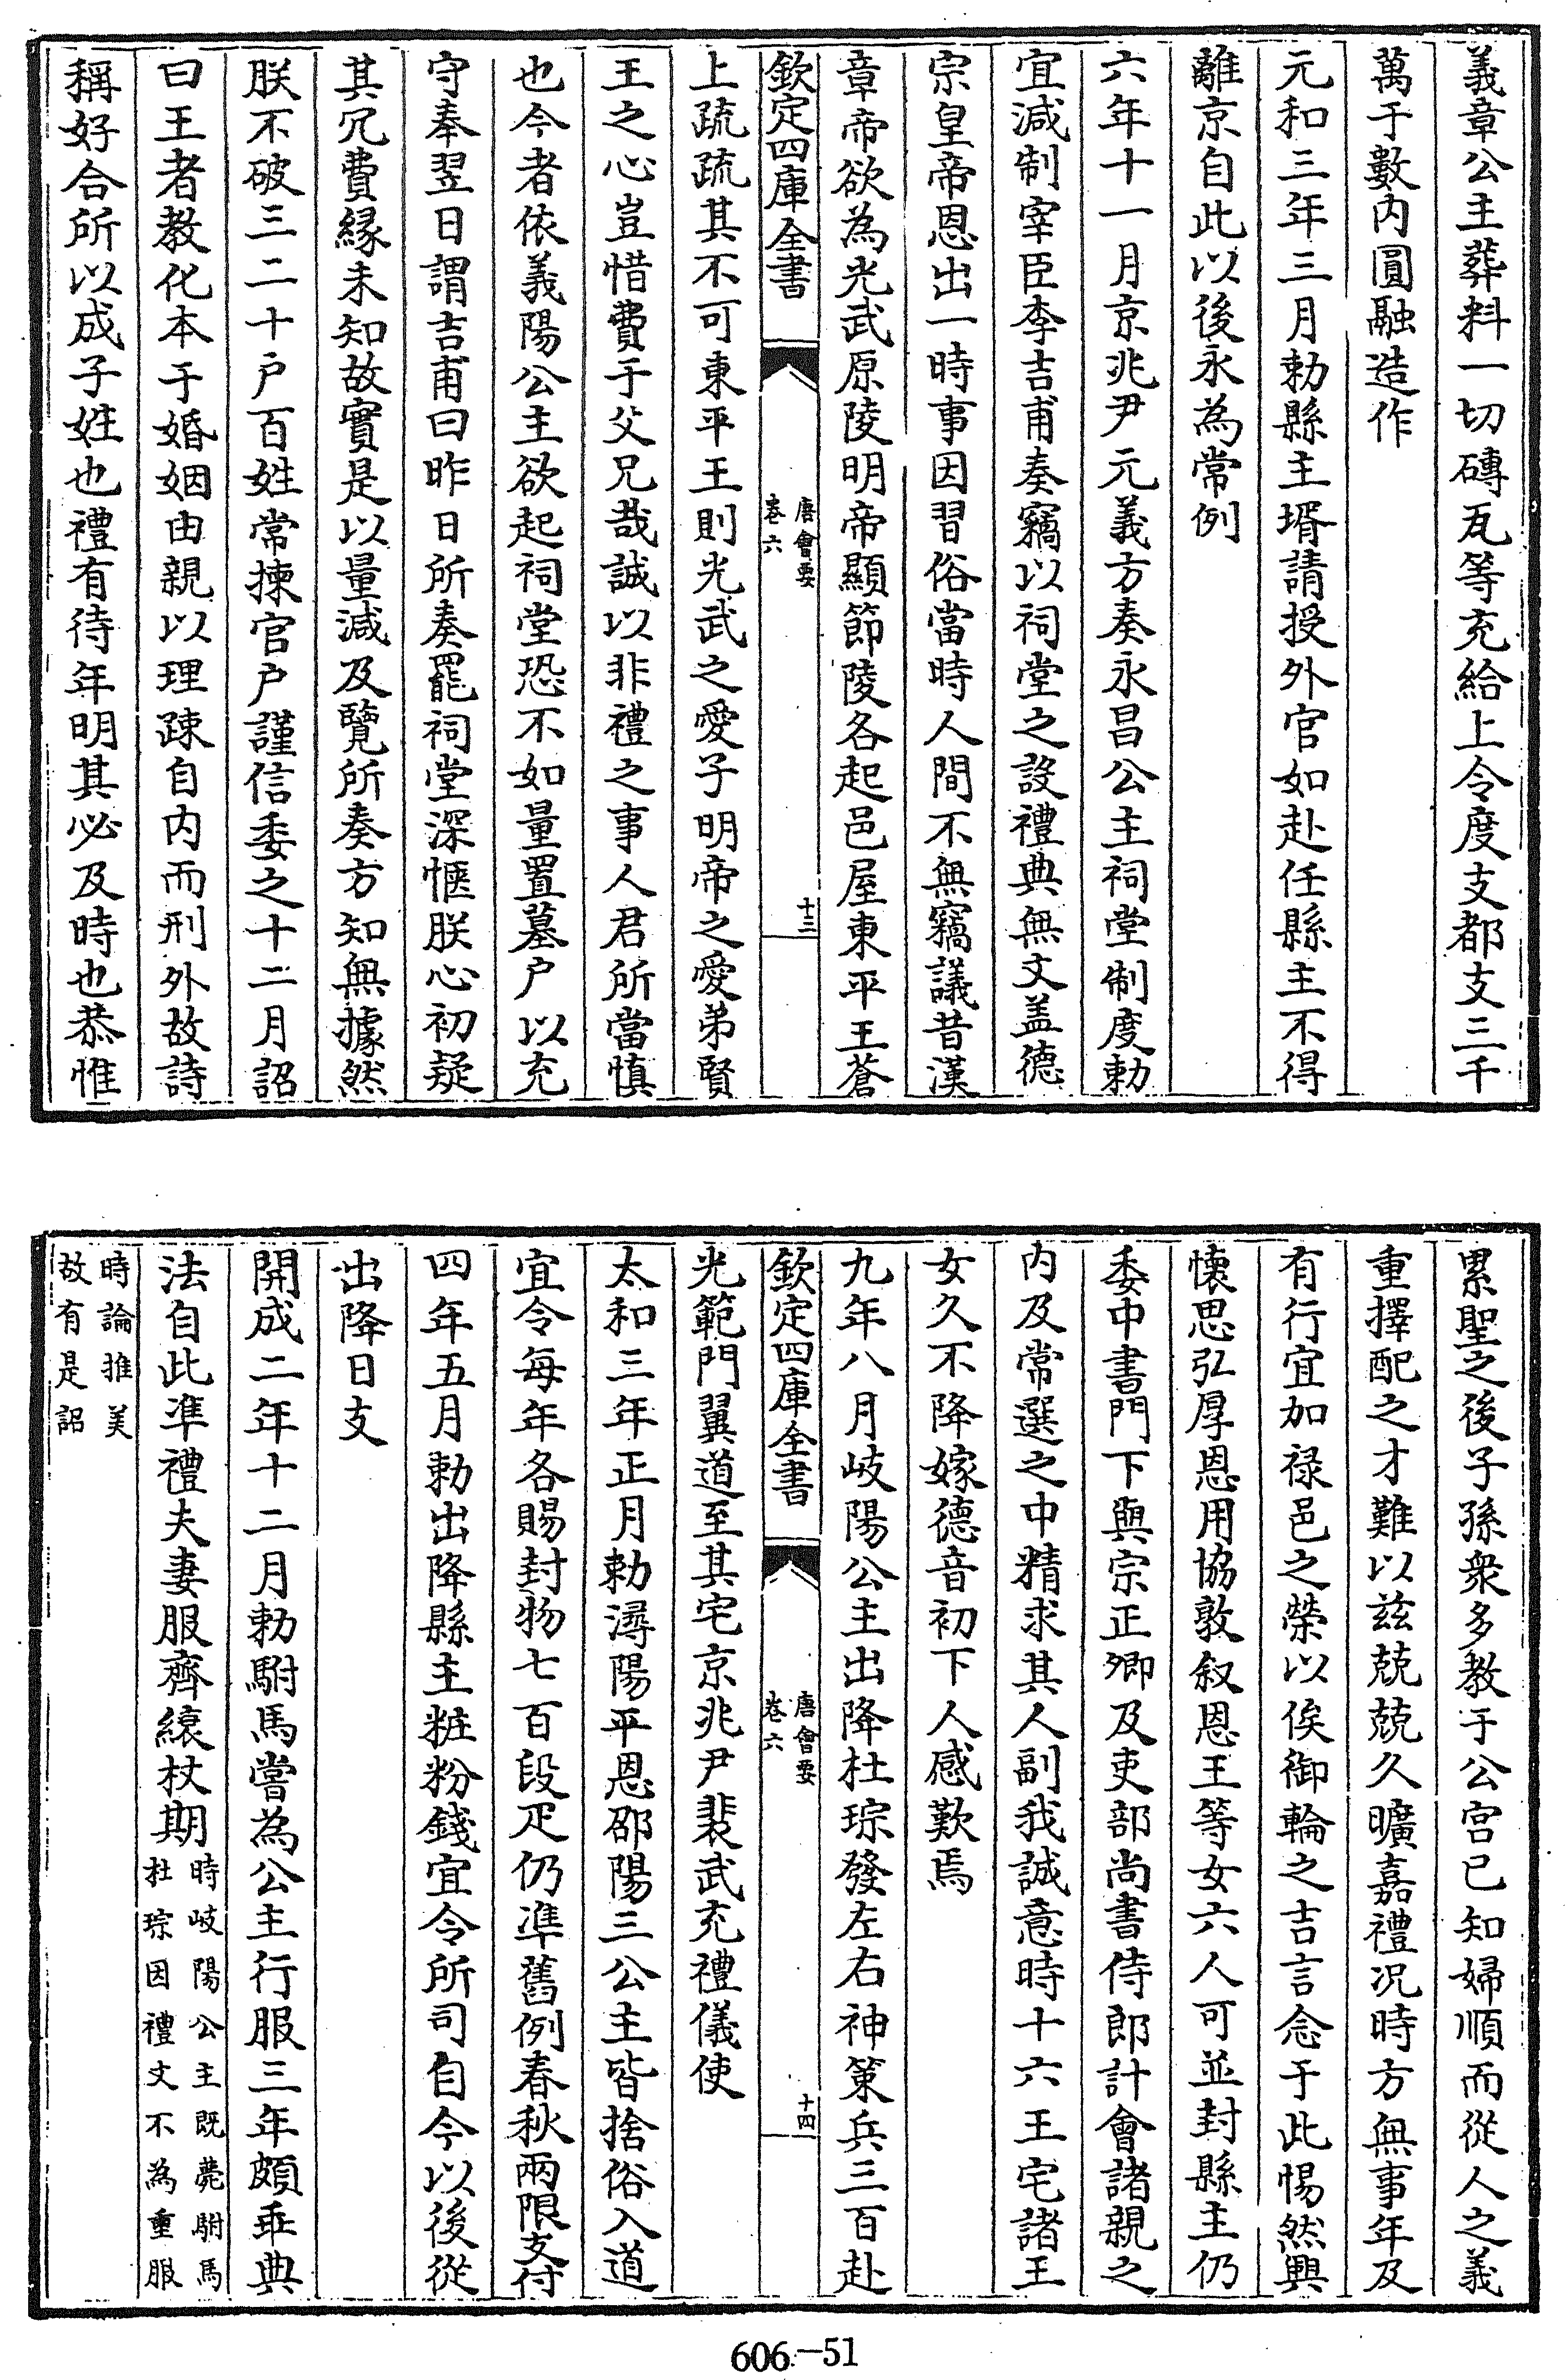 義章公主葬料一切磚瓦等充給上令度支都支三千
萬于數內圓融造作
元和三年三月勅縣主壻請授外官如赴任縣主不得
離京自此以後永為常例
六年十一月京兆尹元義方奏永昌公主祠堂制度勅
宜減制宰臣李吉甫奏竊以祠堂之設禮典無文盖德
宗皇帝恩出一時事因習俗當時人間不無竊議昔漢
章帝欲為光武原陵明帝顯節陵各起邑屋東平王蒼
欽定四庫全書
唐會要
卷六
十三
上疏疏其不可東平王則光武之愛子明帝之愛弟賢
王之心豈惜費于父兄哉誠以非禮之事人君所當慎
也今者依義陽公主欲起祠堂恐不如量置墓户以充
守奉翌日謂吉甫曰昨日所奏罷祠堂深愜朕心初疑
其冗費緣未知故實是以量減及覽所奏方知無據然
朕不破三二十户百姓常揀官户謹信委之十二月詔
曰王者教化本于婚姻由親以理疎自内而刑外故詩
稱好合所以成子姓也禮有待年明其必及時也恭惟
累聖之後子孫衆多教于公宫已知婦順而從人之義
重擇配之才難以兹兢兢久曠嘉禮况時方無事年及
有行宜加禄邑之榮以俟御輪之吉言念于此惕然興
懷思弘厚恩用協敦叙恩王等女六人可並封縣主仍
委中書門下與宗正卿及吏部尚書侍郎計會諸親之
内及常選之中精求其人副我誠意時十六王宅諸王
女久不降嫁德音初下人感歎焉
九年八月岐陽公主出降杜琮發左右神策兵三百赴
欽定四庫全書
唐會要
卷六
十四
光範門翼道至其宅京兆尹裴武充禮儀使
太和三年正月勅潯陽平恩邵陽三公主皆捨俗入道
宜令每年各賜封物七百段疋仍凖舊例春秋兩限支付
四年五月勅出降縣主粧粉錢宜令所司自今以後從
出降日支
開成二年十二月勅駙馬嘗為公主行服三年頗乖典
法自此凖禮夫妻服齊縗杖期
時岐陽公主既薨駙馬
杜琮因禮文不為重服
時論推美
故有是詔
606-51